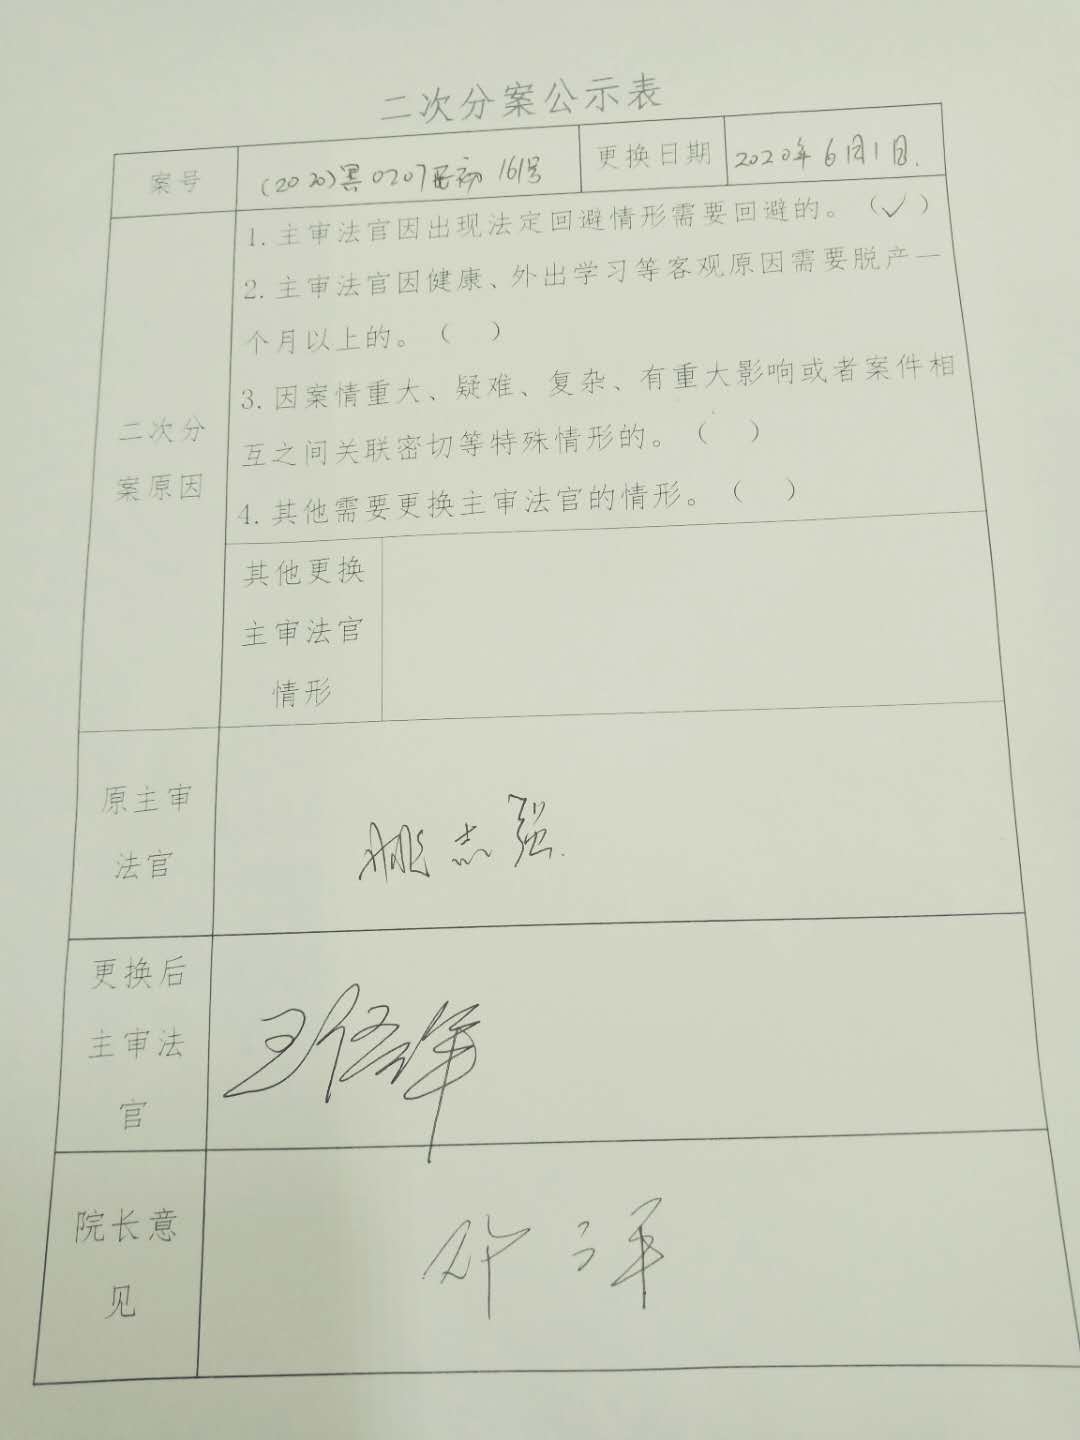 二次分案公示表
案号
(2020)黑0207民初161号
更换日期
2020年6月1日.
二次分
案原因
1.主审法官因出现法定回避情形需要回避的。（✓）
2.主审法官因健康、外出学习等客观原因需要脱产一
个月以上的。（ ）
3.因案情重大、疑难、复杂、有重大影响或者案件相
互之间关联密切等特殊情形的。（ ）
4.其他需要更换主审法官的情形。（ ）
其他更换
主审法官
情形
原主审
法官
姚志强
更换后
主审法
官
院长意
见